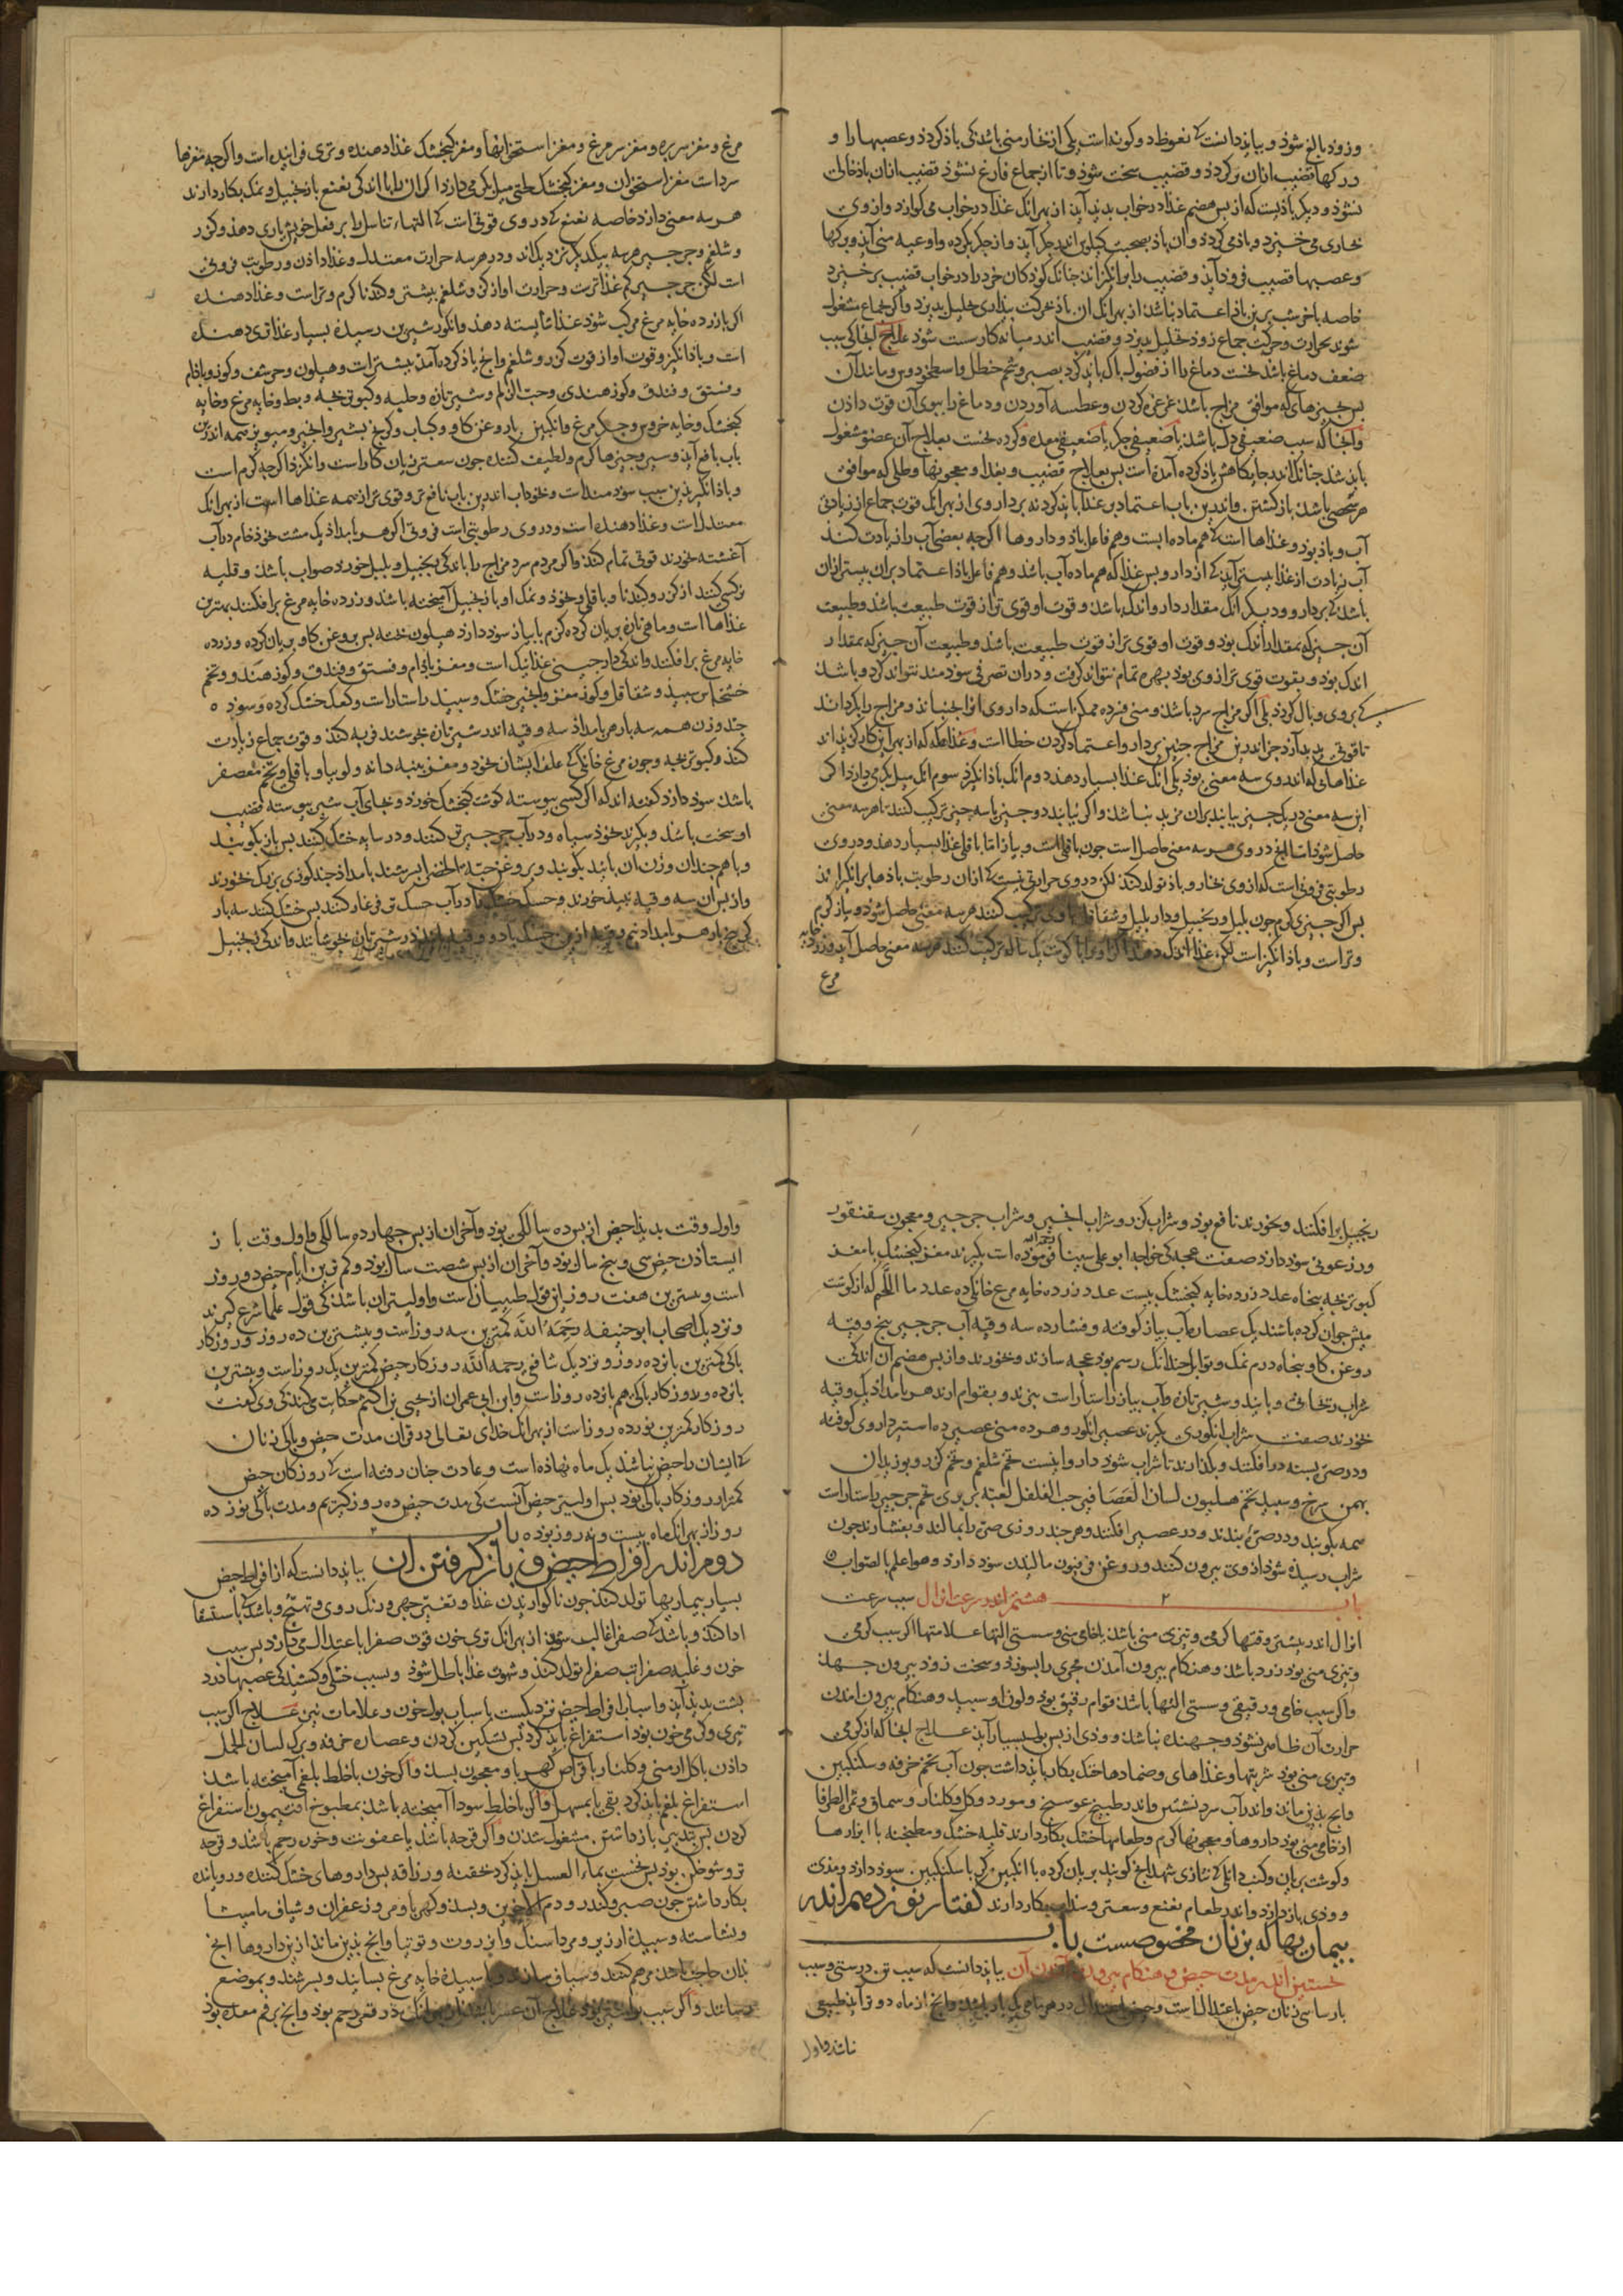 وزود بالغ شوذ و ببایذ دانست که نعوظ دو کونه است یکی از بخار منی باشد کی باذ کردذ و عصبها را و
در کها قضیب ازان پر کردذ و قضیب سخت شوذ و تا از جماع فارغ نشوذ قضیب ازان باذ خالی
نشوذ و دیکر باذیست که از بس هضم غذا در خواب بدید آید از بهر آنک غذا در خواب می کوارذ و از وی
بخاری می خیزد و باذ می کردذ و آن باذ بصحبت کیلوس اندر جکر آید و از جکر بکرده و اوعیه منی آید و برکها
و عصبها قضیب فروذ آید و قضیب را برانکیزاند جنانک کوذکان خرد را در خواب قضیب برخیزد
خاصه باخر شب برین باذ اعتماد نباشذ از بهر آنک ان باذ بحرکت بیذاری تحلیل بذیرد و اکر بجماع مشغول
شوند بحرارت و حرکت جماع زوذ تحلیل بذیرد و قضیب اندر میانه کار سست شوذ علاج انجا کی سبب
ضعف دماغ باشد نخست دماغ را از فضول باک بایذ کرد بصبر و شحم حنظل و اسطوخودوس و مانند آن
بس بجیزهای که موافق مزاج باشذ غرغره کردن و عطسه آوردن و دماغ را ببوی آن قوت داذن
و آنجا که سبب ضعیفی دل باشد یا ضعیفی جکر یا ضعیفی معده و کرده نخست بعلاج آن عضو مشغول
بایذ شد جنانک اندر جایکاهش یاذ کرده آمده است بس بعلاج قضیب و بغذا و معجونها و طلی که موافق
هر شخصی باشد بازکشتن و اندرین باب اعتماد بر غذا بایذ کرد نه بر داروی از بهر آنک قوت جماع از زیادتی
آب و باذ بوذ و غذاها است که هم ماده ابست و هم فاعل باذ و داروها اکرجه بعضی آب را زیادت کنذ
آب زیادت از غذا بیشتر آید که از دارو بس غذا که هم ماده آب باشد و هم فاعل باذ اعتماد بران بیشتر ازان
باشد که بر دارو و دیکر انک مقدار دارو اندک باشد و قوت او قوی تر از قوت طبیعت باشد و طبیعت
آن جیز که بمقدار اندک بود و قوت او قوی تر از قوت طبیعت باشد و طبیعت آن جیز که بمقدار
اندک بود و بقوت قوی تر از وی بود بهره تمام نتواند کرفت و دران تصرفی سودمند نتواند کرد و باشد
که بروی وبال کردذ بلی اکر مزاج سرد باشد و منی فسرده ممکن است که داروی او را بجنباند و مزاج را بکرداند
تا قوتی بدید آرد جز اندرین مزاج جنین بر دارو اعتماد کردن خطا است و غذا که از بهر این کار کزیذه اند
غذاهای که اندروی سه معنی بود یکی آنک غذا بسیار دهند دوم آنک باذ انکیزذ سوم آنک میل بکرمی دارذ اکر
این سه معنی در یک جیز بیابند بران مزید نباشد و اکر نیابند دو جیز یا سه جیز ترکیب کنند تا هر سه معنی
حاصل شوذ اما آنج در وی هر سه معنی حاصل است جون باقلی است و بیاز اما باقلی غذا بسیار دهد و در وی
رطوبتی فزونی است که از وی بخار و باذ تولد کند لکن در وی حرارتی نیست که ازان رطوبت باذها برانکیزاند
بس اکر جیزی کرم جون بلبل و زنجبیل و دار بلبل و شقاقل با وی ترکیب کنند هر سه معنی حاصل شود و بیاز کرم
و تر است و باذ انکیز است لکن غذا اندک دهد اکر او را با کوشت یک ساله ترکیب کنند هر سه معنی حاصل آید و زرده خایه
مرغ
مرغ و مغز سر بره و مغز سر مرغ و مغز استخوانها و مغز کنجشک غذا دهنده و تری فزاینده است و اکرجه مغزها
سرد است مغز استخوان و مغز کنجشک خلق میل بکرمی دارد اکر ان را با اندکی نعنع یا زنجبیل و نمک بکار دارند
هر سه معنی دارد خاصه نعنع که در وی قوتی است که التهاء تناسل را بر فعل خویش یاری دهد و کزر
و شلغم و جرجیر هر سه بیکدیکر نزدیک اند و در هر سه حرارت معتدل و غذا داذن و رطوبت فزونی
است لکن جرجیر کم غذاتر است و حرارت او از کزر و شلغم بیشتر و کندنا کرم و تر است و غذا دهنده
اکر با زرده خایه مرغ مرکب شود غذا شایسته دهد و انکور شیرین رسیده بسیار غذا قوی دهنده
است و باذ انکیز و قوت او از قوت کزر و شلغم و آنج یاذ کرده آمد بیشتر است و هلیون و حرشف و کوز و باذام
و فستق و فندق و کوز هندی و حب الزلم و شیر تازه و حلبه و کبوتر بجه و بط و خایه مرغ و خایه
کنجشک و خایه خروس و جکر مرغ و انکبین با روغن کاو و کباب و کرنج بشیر و انجیر و مویز همه اندرین
باب نافع آید و سیر و جیزها کرم و لطیف کننده جون سعتر زیان کار است و انکزد اکرجه کرم است
و باذ انکیز بدین سبب سودمند است و نخوذ اب اندرین باب نافع تر و قوی تر از همه غذاها است از بهر آنک
معتدل است و غذا دهنده است و در وی رطوبتی است فزونی اکر هر بامداذ یک مشت نخوذ خام در آب
آغشته بخورند قوتی تمام کند و اکر مردم سرد مزاج را با اندکی زنجبیل و بلبل خورند صواب باشد و قلیه
نرکسی کنند از کزر و کندنا و باقلی و نخوذ و نمک او با زنجبیل آمیخته باشد و زرده خایه مرغ بر افکنند بهترین
غذاها است و ماهی تازه بریان کرده کرم با بیاز سود دارد هلیون بخته بس بروغن کاو بریان کرده و زرده
خایه مرغ بر افکنند و اندکی دارجینی غذا نیک است و مغز باذام و فستق و فندق و کوز هندو و تخم
خشخاش سبیذ و شقاقل و کوز مغز و انجیر خشک و سبیذ راستا راست و کعک خشک کرده و سوذه
جند وزن همه سه بار هر بامداذ سه وقیه اندر شیر تازه بجوشند فربه کند و قوت جماع زیادت
کند و کبوتر بجه و جون مرغ خانکی که علف ایشان نخود و مغز بنبه دانه و لوبیا و باقلی و تخم معصفر
باشد سود دارد کفته اند که اکر کسی بیوسته کوشت کنجشک خورد و بجای آب شیر بیوسته قضیب
او سخت باشد و بکیرند نخوذ سیاه و در آب جرجیر تر کنند و در سایه خشک کنند بس باز بکوبند
و با هم جندان وزن ان بانید بکوبند و بروغن حبة الخضرا بسرشند بامداذ جند کوزی بزرک خورند
و از بس ان سه وقیه نبیذ خورند و حسک خشک را در آب حسک تر فرغار کنند بس خشک کنند سه بار

زنجبیل بر افکنند و بخورند نافع بود و شراب کزر و شراب انجیر و شراب جرجیر و معجون سقنقور
و زرعونی سود دارد صفت عجه کی خواجه ابو علی سینا فرموده است بکیرند مغز کنجشک با مغز
کبوتر بجه بنجاه عدد زرده خایه کنجشک بیست عدد زرده خایه مرغ خانکی ده عدد ما اللحم که از کوشت
میش جوان کرده باشند یک عصاره آب بیاز کوفته و فشارده سه وقیه آب جرجیر بنج وقیه
روغن کاو بنجاه درم نمک و توابل جندانک رسم بود عجه سازند و خورند و از بس هضم آن اندکی
شراب ریحانی و بانید و شیر تازه و آب بیاز راستا راست ببزند و بقوام ارند هر بامداذ یک وقیه
خورند صفت شراب انکوری بکیرند عصیر انکور و هر ده من عصیر ده استیر داروی کوفته
و در صره بسته در افکنند و بکذارند تا شراب شود داروا اینست تخم شلغم و تخم کزر و بوزیدان
بهمن سرخ و سبید تخم هلیون لسان العصافیر حب الفلفل لعبه بربری تخم جرجیر راستا راست
همه بکوبند و در صره بندند و در عصیر افکنند و هر جند روزی صره را بمالند و بفشارند جون
شراب رسیذه شوذ از وی بیرون کنند و روغن فرفیون مالیدن سود دارد و هو اعلم بالصواب
باب ٢ هشتم اندر سرعت انزال سبب سرعت
انزال اندر بیشتر وقتها کرمی و تیزی منی باشد یا خامی منی و سستی التها علامتها اکر سبب کرمی
و تیزی منی بود زرد باشد و هنکام بیرون آمدن مجری را بسوزد و سخت زود بیرون جهد
و اکر سبب خامی و رقیقی و سستی التها باشد قوام رقیق بود و لون او سبید و هنکام بیرون امدن
حرارت آن ظاهر نشود و جهنده نباشد و وذی از بس بول بسیار آید علاج انجا که از کرمی
و تیزی منی بود شربتها و غذاهای و ضمادها خنک بکار بایذ داشت جون آب تخم خرفه و سکنکبین
و آنج بذین ماند و اندر آب سرد نشستن و اندر طبیخ عوسج و مورد و کل و کلنار و سماق و ثمر الطرفا
از خامی منی بود داروها و معجونها کرم و طعامها خشک بکار دارند قلیه خشک و مطنجنه با ابزارها
و کوشت بریان و کنب دانه کی بتازی شهدانج کویند بریان کرده با انکبین کی با سکنکبین سود دارد و مذی
و وذی باز دارد و اندر طعام نعنع و سعتر و سذاب بکار دارند کفتار نوزدهم اندر
بیماریها که بزنان مخصوصست باب
نخستین اندر مدت حیض و هنکام بیرون آمدن آن ببایذ دانست که سبب تن درستی و سبب
بارسا سی زنان حیض باعتدال است و حیض باعتدال در هر ماهی یک بار باشد و آنج از ماه دو تو آید طبیعی
نباشد و اول
و اول وقت بدید آمدن حیض از بس ده سالکی بوذ و آخر ان از بس جهارده سالکی و اول وقت باز
ایستاذن حیض سی و بنج سال بوذ و آخر ان از بس شصت سال بوذ و کم ترین ایام حیض دو روز
است و بیشترین هفت روز این قول طبیبان است و اولیتر ان باشد کی قول علما شرع کیرند
و نزدیک اصحاب ابو حنیفه رحمه الله کمترین سه روز است و بیشترین ده روز و روزکار
باکی کمترین بانزده روز و نزدیک شافعی رحمه الله روزکار حیض کمترین یک روز است و بیشترین
بانزده و روزکار باکی هم بانزده روز است و ابن ابی عمران از یحیی بن اکثم حکایت می کند کی وی کفت
روزکار کمترین نوزده روز است از بهر آنک خدای تعالی در قران مدت حیض و باکی زنان
که ایشان را حیض نباشد یک ماه نهاذه است و عادت جنان رفته است که روزکار حیض
کمتر از روزکار باکی بود بس اولیتر حیض آنست کی مدت حیض ده روز کیریم و مدت باکی نوزده
روز از بهر آنک ماه بیست و نه روز بوذه باب
دوم اندر افراط حیض و باز کرفتن ان ببایذ دانست که از افراط حیض
بسیار بیماریها تولد کند جون ناکواریدن غذا و تغیر جهره و رنک روی و تهبج و باشد که باستسقا
ادا کند و باشد که صفرا غالب شود از بهر آنک تری خون قوت صفرا باعتدال می دارد بس سبب
خون و غلبه صفرا تب صفرا تولد کند و شهوت غذا باطل شود و بسبب خشکی و کشیذکی عصبها درد
بشت بدید آید و اسباب افراط حیض نزدیکست باسباب بول خون و علامات نیز علاج اکر سبب
تیزی و کرمی خون بود استفراغ بایذ کرد بس تسکین کردن و عصاره خرفه و برک لسان الحمل
داذن با کل ارمنی و کلنار یا قراص کهربا و معجون بسذ و اکر خون با خلط بلغمی آمیخته باشد
استفراغ بلغم بایذ کرد بقی یا بمسهل و اکر با خلط سودا آمیخته باشد بمطبوخ افتیمون استفراغ
کردن بس بتدبیر باز داشتن مشغول شدن و اکر قرحه باشد یا عفونت و خون رحم باشد و قرحه
تر و شوخکن بود بس نخست بماء العسل بایذ کرد حقنه و زراقه بس داروهای خشک کننده و رویاننده
بکار داشتن جون صبر و کندر و دم الاخوین و بسذ و کهربا و مر و زعفران و شیاف مامیثا
و نشاسته و سبیذه ارزیز و مرداسنک و انزروت و توتیا و آنج بذین ماند ازین داروها آنج
بذان حاجت باشد مرهم کنند و شیاف سازند و با سبیده خایه مرغ بسایند و بسرشند و بموضع